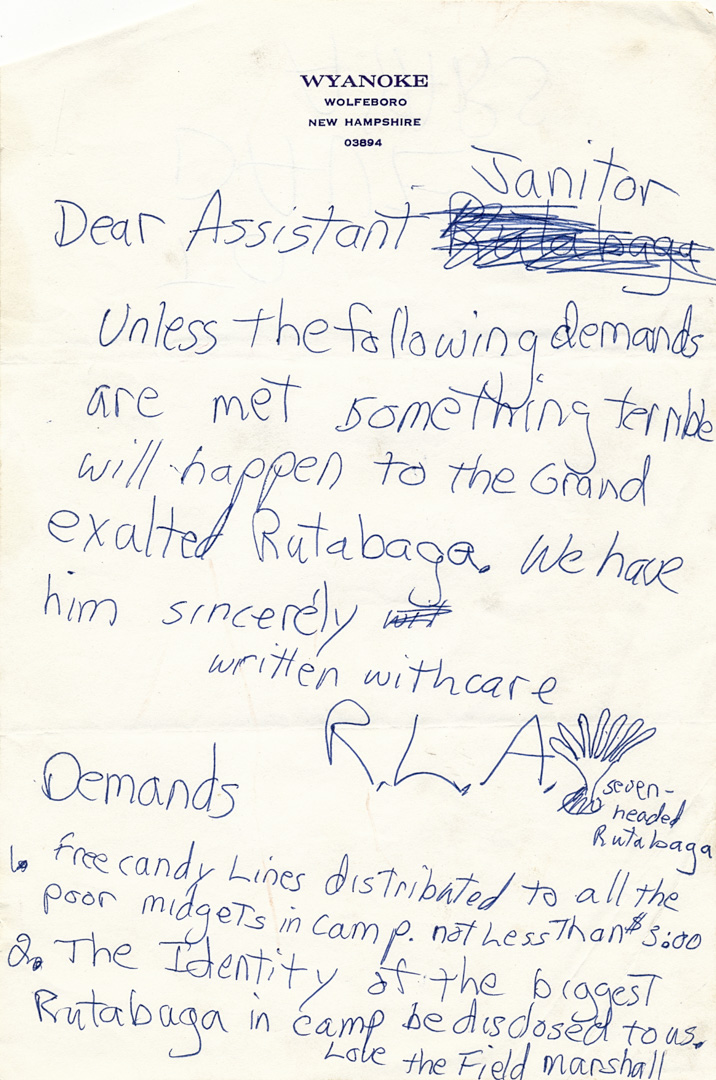 WYANOKE
WOLFEBORO
NEW HAMPSHIRE
03894
Janitor
Dear Assistant Rutabaga
Unless the following demands
are met something terrible
will happen to the Grand
exalted Rutabaga. We have
him sincerely
written with care
R.L.A.
seven-
headed
Rutabaga
Demands
1. free candy Lines distributed to all the
poor midgets in camp. not Less Than $3.00
2. The Identity of the biggest
Rutabaga in camp be disclosed to us.
Love the Field marshall